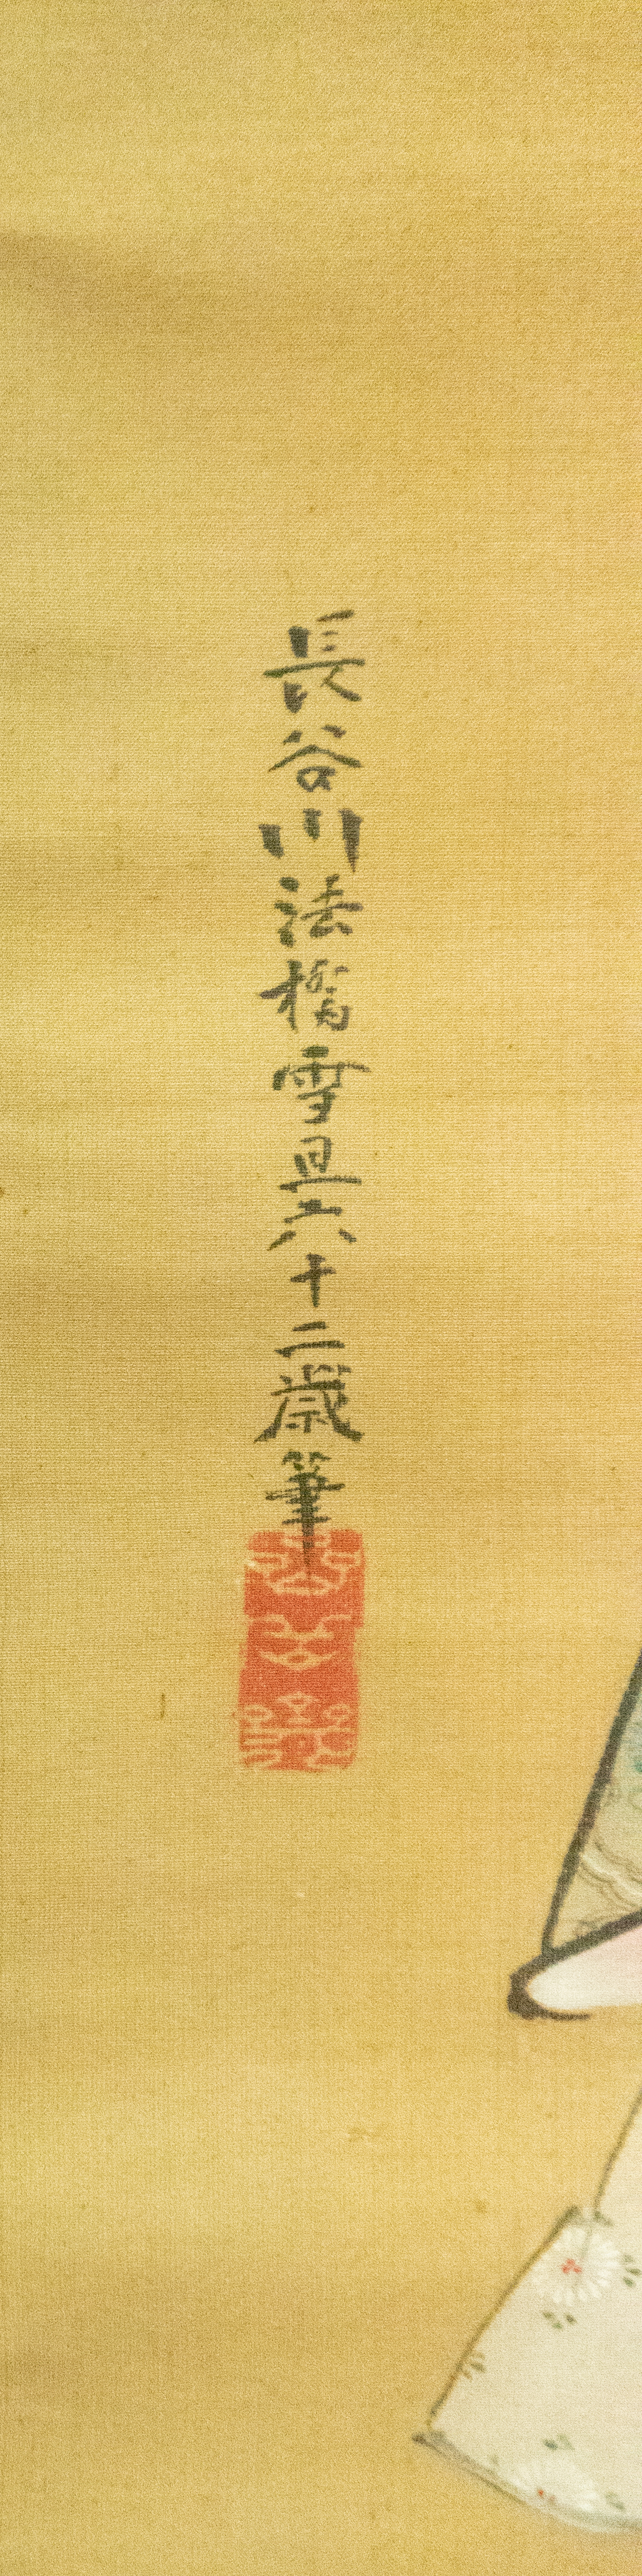 長谷川法橋雪旦六十二歳筆